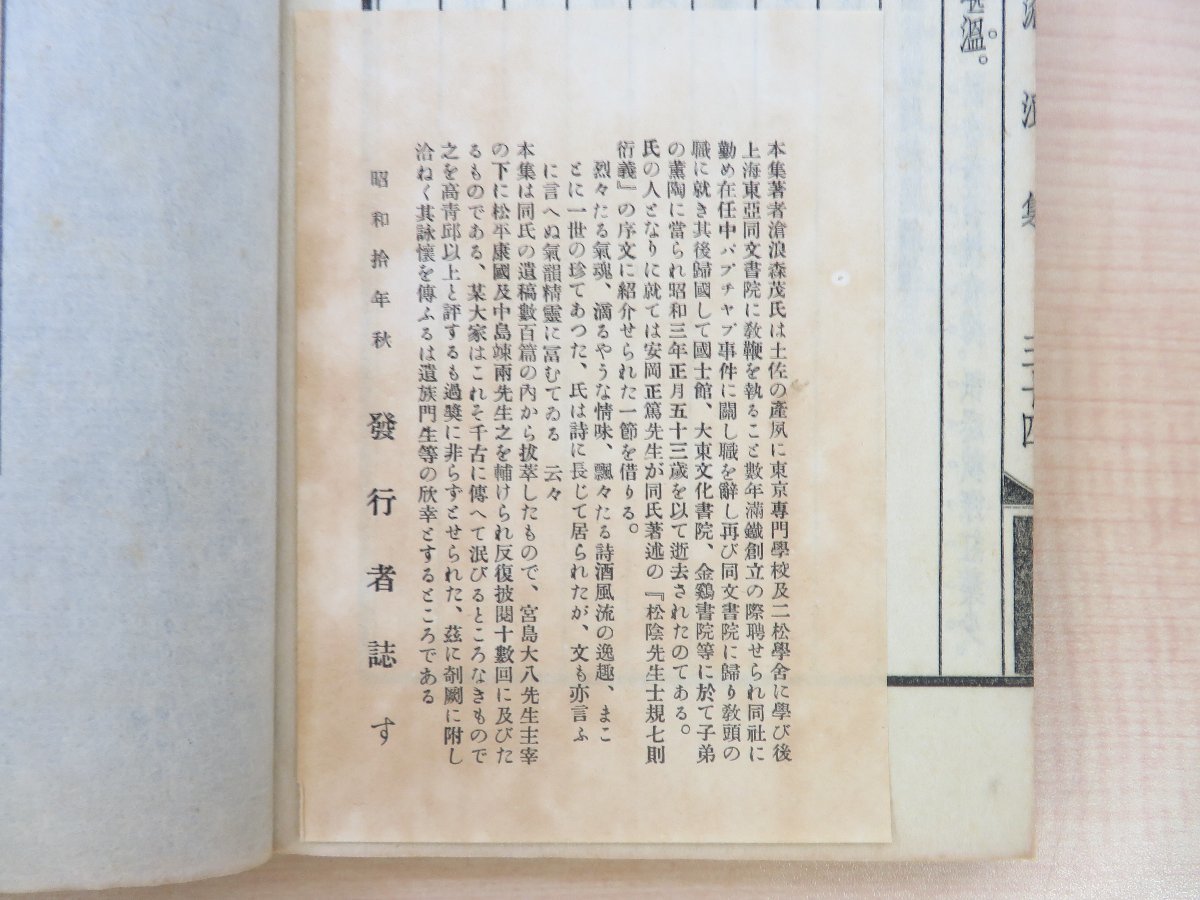 甚溫。
滄浪集
三十四
本集著者滄浪森茂氏は土佐の產夙に東京專門學校及二松學舍に學び後
上海東亞同文書院に敎鞭を執ること數年滿鐵創立の際聘せられ同社に
勤め在任中バブチヤブ事件に關し職を辭し再び同文書院に歸り敎頭の
職に就き其後歸國して國士館、大東文化書院、金鷄書院等に於て子弟
の薰陶に當られ昭和三年正月五十三歲を以て逝去されたのてある。
氏の人となりに就ては安岡正篤先生が同氏著述の『松陰先生士規七則
衍義』の序文に紹介せられた一節を借りる。
烈々たる氣魂、滴るやうな情味、飄々たる詩酒風流の逸趣、まこ
とに一世の珍てあつた、氏は詩に長じて居られたが、文も亦言ふ
に言へぬ氣韻精靈に富むてゐる 云々
本集は同氏の遺稿數百篇の內から拔萃したもので、宮島大八先生主宰
の下に松平康國及中島竦兩先生之を輔けられ反復披閱十數回に及びた
るものである、某大家はこれそ千古に傳へて泯びるところなきもので
之を高靑邱以上と評するも過奬に非らずとせられた、茲に剞劂に附し
洽ねく其詠懷を傳ふるは遺族門生等の欣幸とするところである
昭和拾年秋 發行者誌す